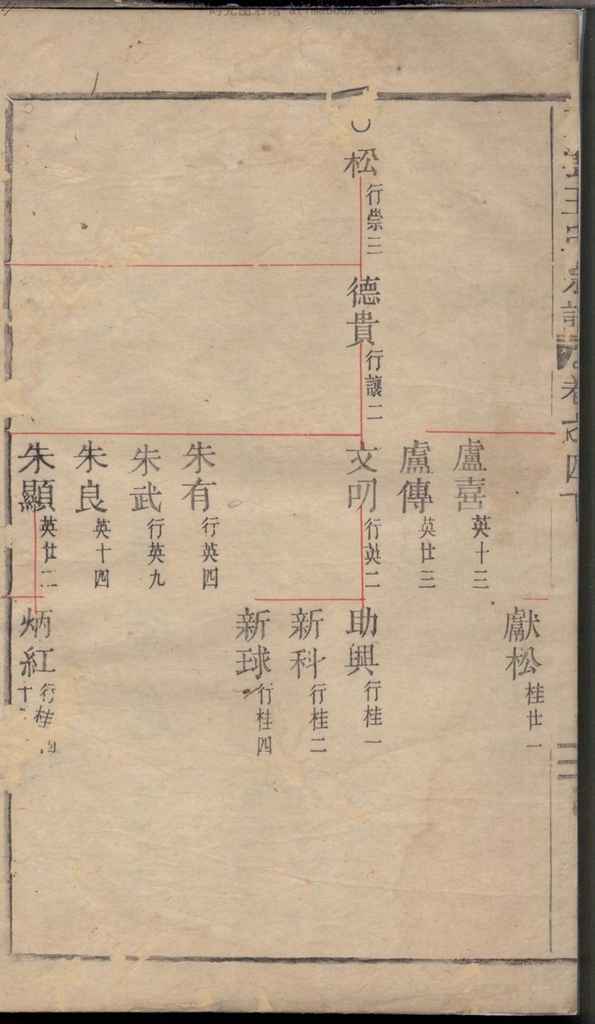 獻松 桂廿一
盧喜 英十三
盧傳 英廿三
松 行崇三
德貴 行讓二
文明 行英二
助興 行桂一
新科 行桂二
新球 行桂四
朱有 行英四
朱武 行英九
朱良 英十四
朱顯 英廿二
炳紅 行桂十四